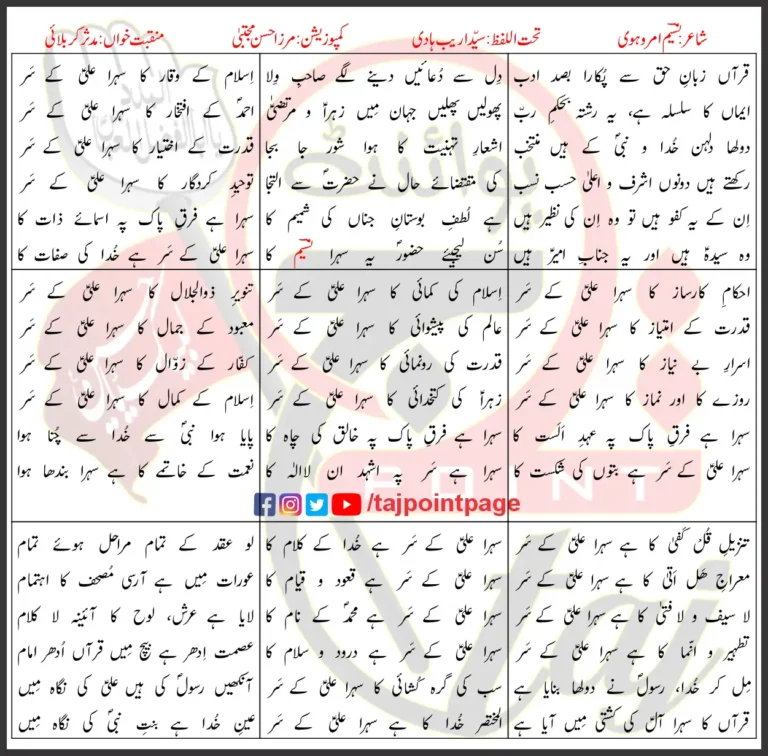 شاعر: نسیم امروہوی
تحت اللفظ: سیّد اریب ہادی
کمپوزیشن: مرزا حسن مجتبیٰ
منقبت خواں: مدثر کربلائی
قرآں زبانِ حق سے پُکارا بصد ادب
ایماں کا سلسلہ ہے، یہ رشتہ بحکمِ ربّ
دولھا دلہن خُدا و نبیؐ کے ہیں منتخب
رکھتے ہیں دونوں اشرف و اعلیٰ حسب نسب
اِن کے یہ کفو ہیں تو وہ اِن کی نظیر ہیں
وہ سیدہؑ ہیں اور یہ جنابِ امیرؑ ہیں
دِل سے دُعائیں دینے لگے صاحبِ وِلا
پھولیں پھلیں جہان میں زہراؑ و مرتضیٰؑ
اشعارِ تہنیت کا ہوا شور جا بجا
کی مقتضائے حال نے حضرتؐ سے التجا
ہے لُطفِ بوستانِ جناں کی شمیم کا
سُن لیجیئے حضورؐ یہ سہرا نسیمؔ کا
اِسلام کے وقار کا سہرا علیؑ کے سَر
احمدؐ کے افتخار کا سہرا علیؑ کے سَر
قدرت کے اختیار کا سہرا علیؑ کے سَر
توحیدِ کردگار کا سہرا علیؑ کے سَر
سہرا ہے فرقِ پاک پہ اسمائے ذات کا
سہرا علیؑ کے سَر ہے خُدا کی صفات کا
احکامِ کارساز کا سہرا علیؑ کے سَر
قدرت کے امتیاز کا سہرا علیؑ کے سَر
اسرارِ بے نیاز کا سہرا علیؑ کے سَر
روزے کا اور نماز کا سہرا علیؑ کے سَر
سہرا ہے فرقِ پاک پہ عہدِ اَلَست کا
سہرا علیؑ کے سَر ہے بتوں کی شکست کا
اِسلام کی کمائی کا سہرا علیؑ کے سَر
عالم کی پیشوائی کا سہرا علیؑ کے سَر
قدرت کی رونمائی کا سہرا علیؑ کے سَر
زہراؑ کی کتخدائی کا سہرا علیؑ کے سَر
سہرا ہے فرقِ پاک پہ خالق کی چاہ کا
سہرا ہے سَر پہ اشہد ان لاالہ کا
تنویرِ ذوالجلال کا سہرا علیؑ کے سَر
معبود کے جمال کا سہرا علیؑ کے سَر
کفّار کے زوّال کا سہرا علیؑ کے سَر
اِسلام کے کمال کا سہرا علیؑ کے سَر
پایا ہوا نبیؐ سے خُدا سے چُنا ہوا
نعمت کے خاتمے کا ہے سہرا بندھا ہوا
/tajpointpage
تنزیلِ قُل کَفیٰ کا ہے سہرا علیؑ کے سَر
معراجِ ھَل اَتیٰ کا ہے سہرا علیؑ کے سَر
لا سیف و لا فتیٰ کا ہے سہرا علیؑ کے سَر
تطہیر و انّما کا ہے سہرا علیؑ کے سَر
مِل کر خُدا، رسولؐ نے دولھا بنایا ہے
قرآں کا سہرا آلؑ کی کشتی میں آیا ہے
سہرا علیؑ کے سَر ہے خُدا کے کلام کا
سہرا علیؑ کے سَر ہے قعود و قیام کا
سہرا علیؑ کے سَر ہے محمدؐ کے نام کا
سہرا علیؑ کے سَر ہے درود و سلام کا
سب کی گرہ کُشائی کا سہرا علیؑ کے سَر
المختصر خُدا کا ہے سہرا علیؑ کے سَر
لو عقد کے تمام مراحل ہوئے تمام
عورات میں ہے آرسی مُصحف کا اہتمام
لایا ہے عرش، لوح کا آئینہ لا کلام
عصمت اِدھر ہے بیچ میں قرآں اُدھر امام
آنکھیں رسولؐ کی ہیں علیؑ کی نگاہ میں
عینِ خُدا ہے بنتِ نبیؐ کی نگاہ میں
پوائنٹ
POINT
taj